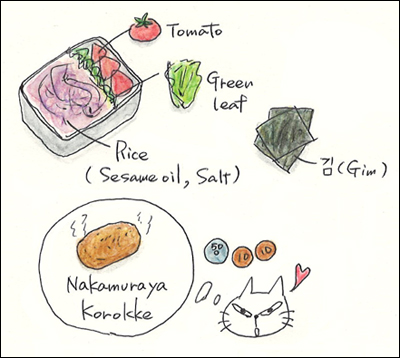 Tomato
Green
leaf
Rice
(Sesame oil, Salt)
김(Gim)
Nakamuraya
Korokke
50
10
10